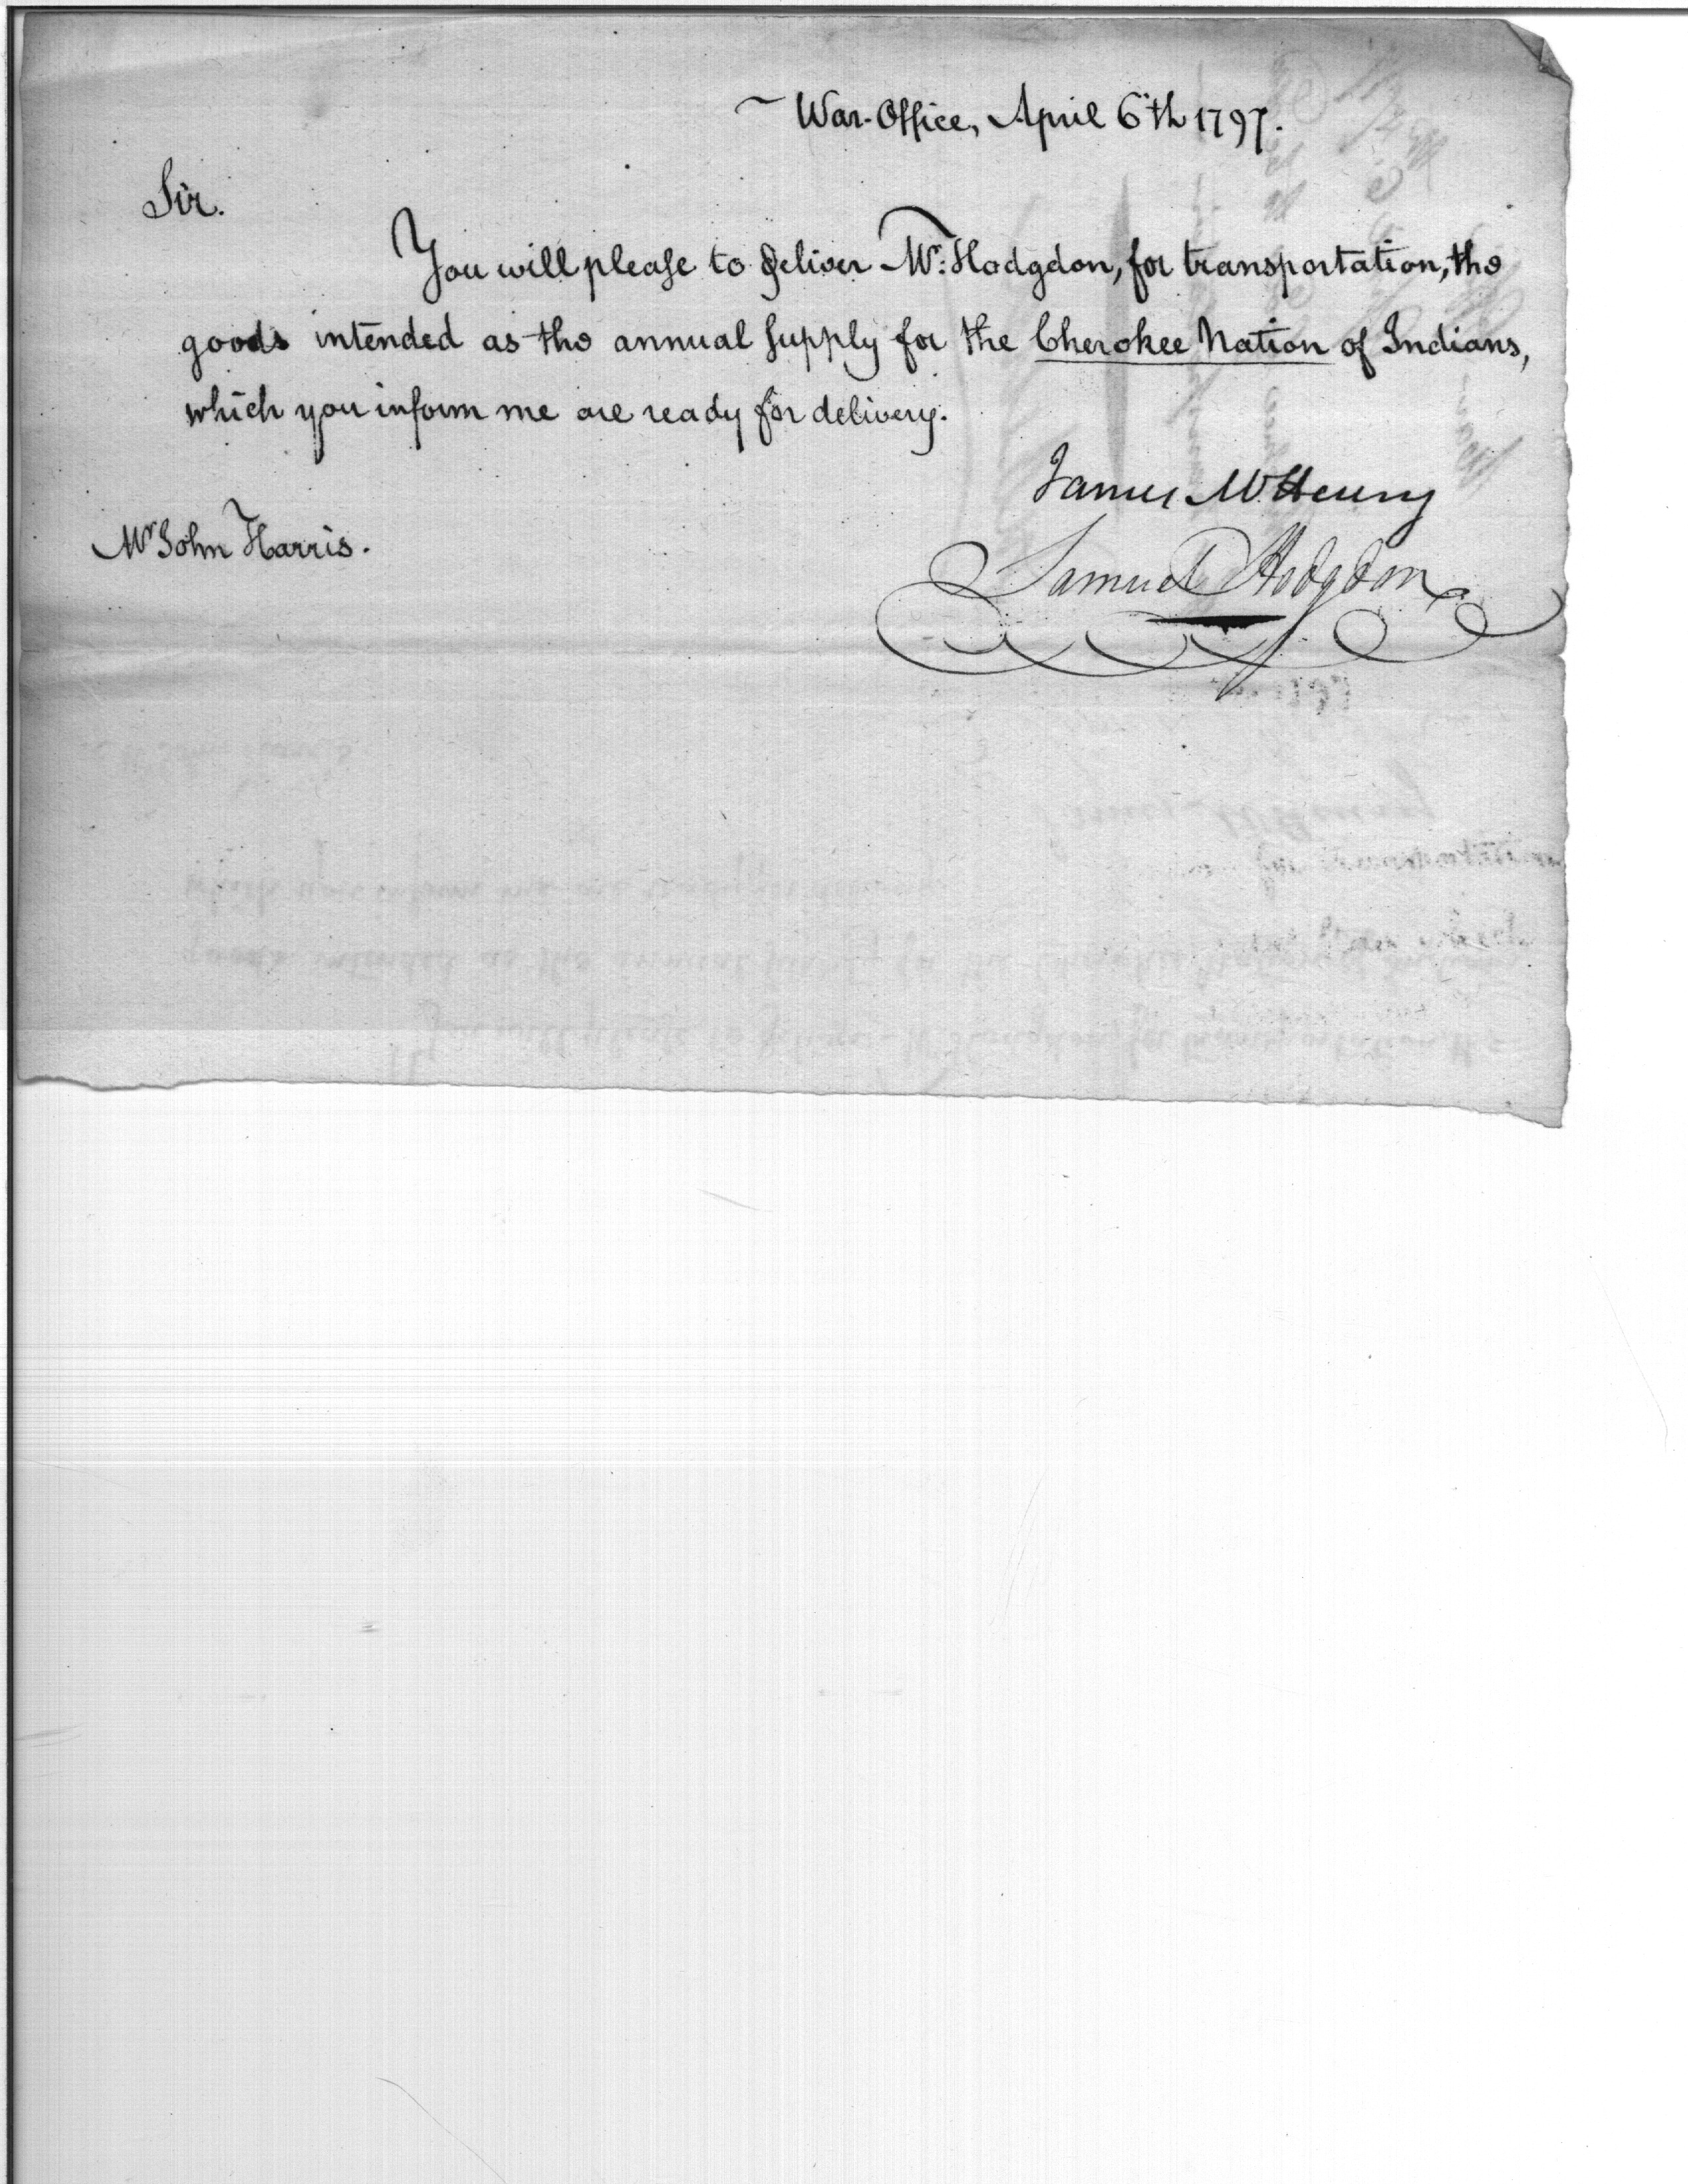 ~ War-Office, April 6th 1797.
Sir.
You will please to deliver Mr. Hodgdon, for transportation, the
goods intended as the annual supply for the Cherokee Nation of Indians,
which you inform me are ready for delivery.
James McHenry
Mr John Harris.
Samuel Hodgdon